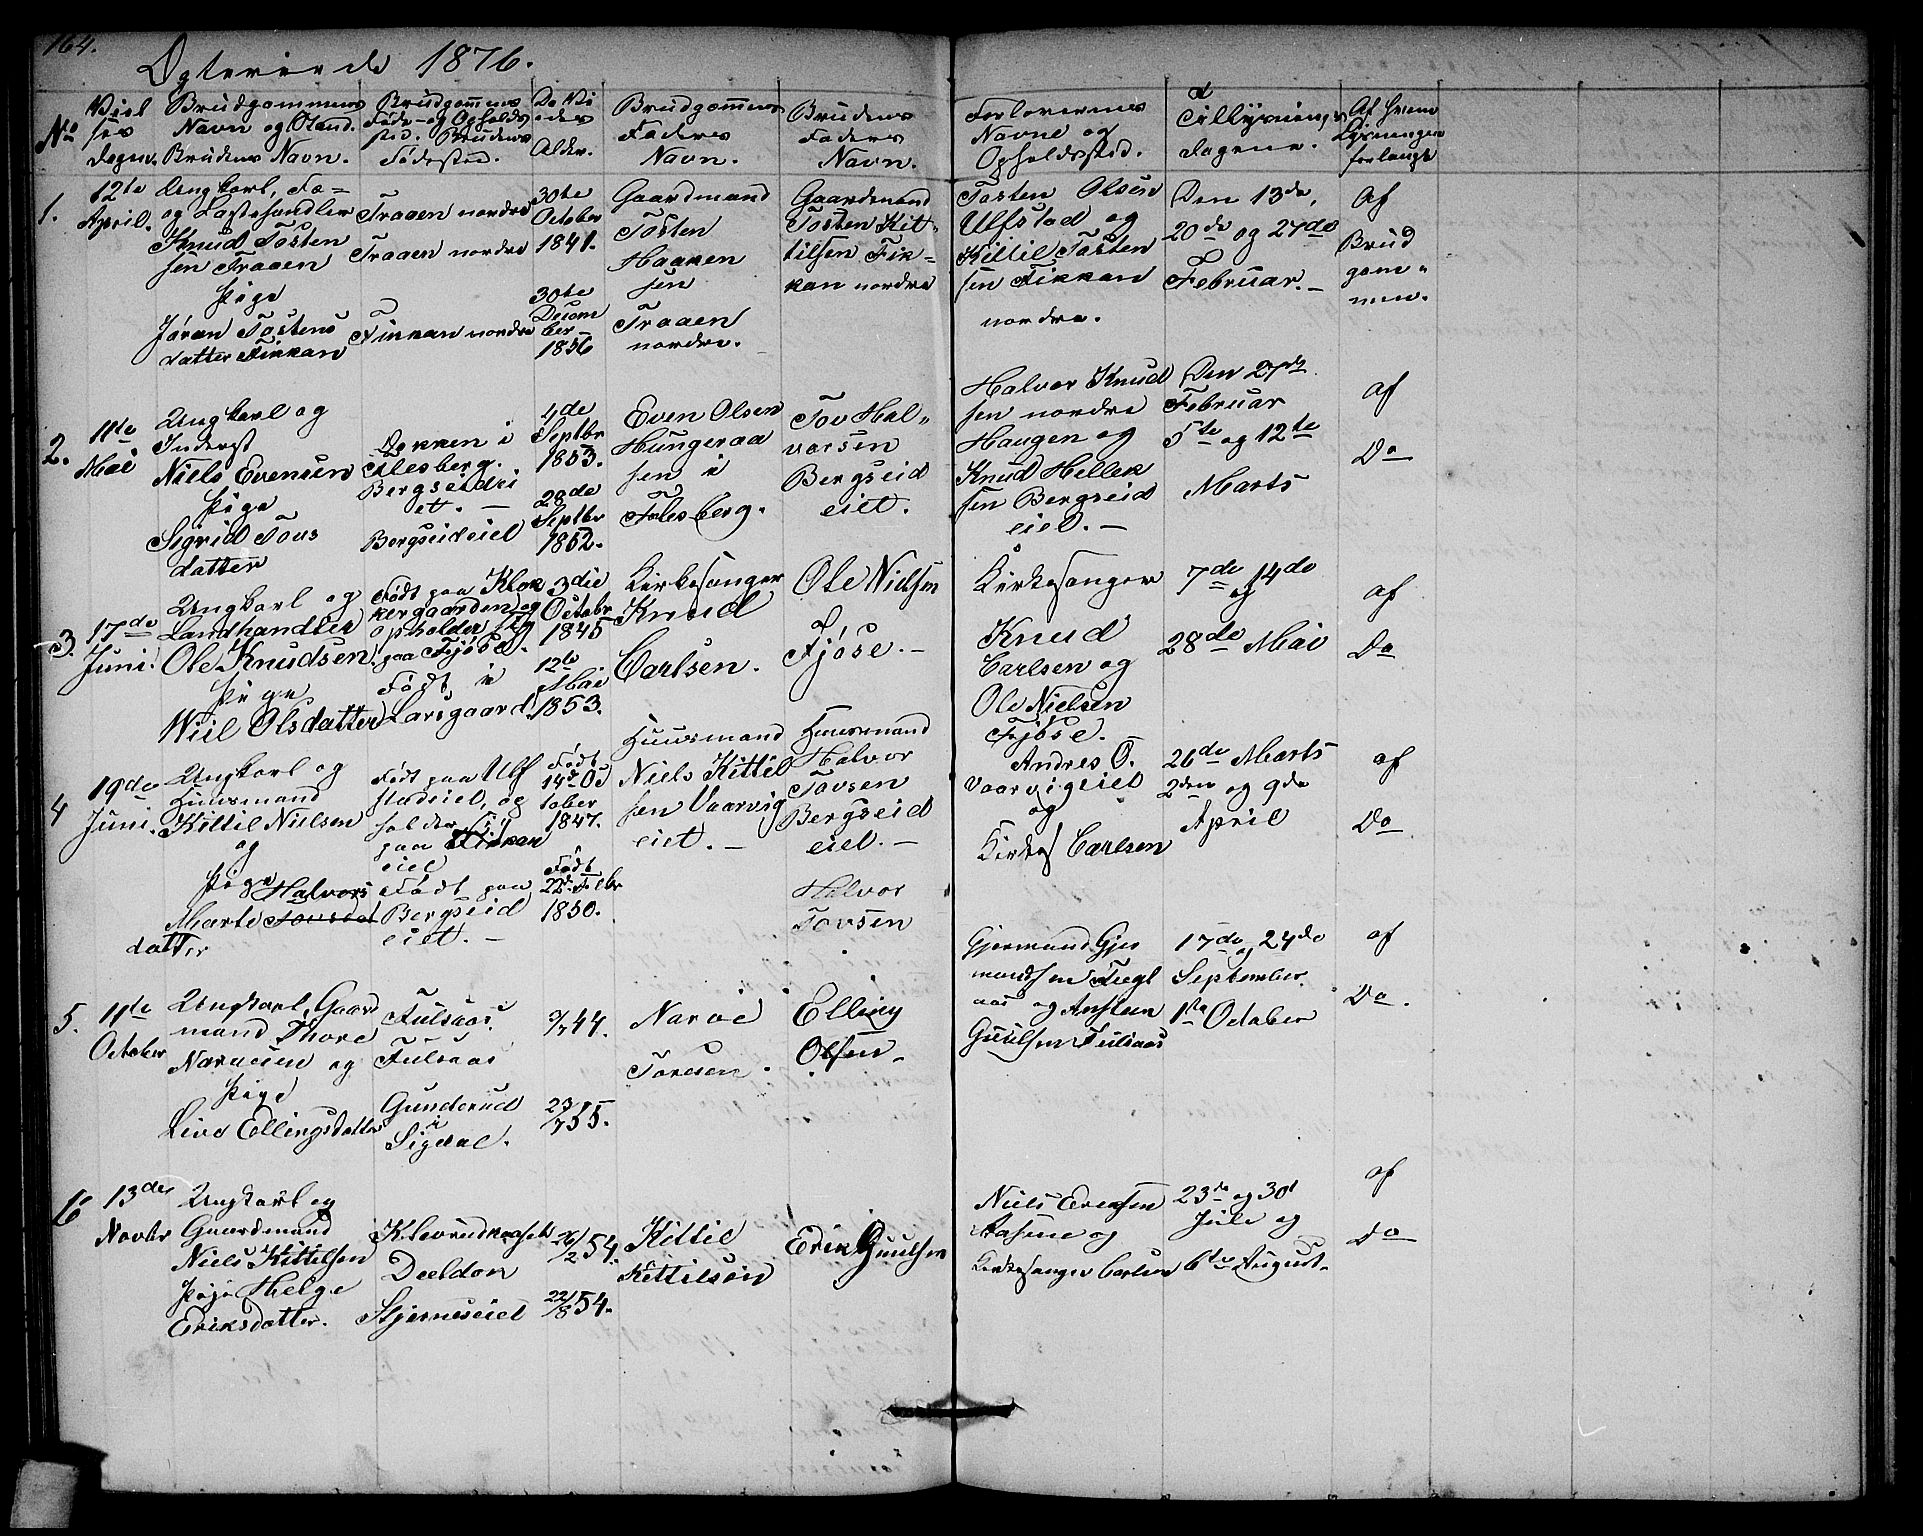 164.
Ægteviede 1876.
No
Viel
ses
dagen.
Brudgommens
Navn og Stand.
Brudens Navn.
Brudgommens
Føde- og Opholds
sted. Brudens
Fødested.
De Vi
edes
Alder.
Brudgommens
Faders
Navn.
Brudens
Faders
Navn.
Forlovernes
Navne og
Opholdssted.
Tillysnings
dagene.
Af hvem
Lysningen
forlangt
1.
12te
April.
Ungkarl, Fø-
og Lastehandler
Knud Tosten
sen Traaen
Pige
Jøran Tostens
datter Fikkan
Traaen nordre
Traaen nordre
Fikkan nordre
30te
October
1841.
30te
Decem
ber
1856
Gaardmand
Tosten
Haaken
sen
Traaen
nordre.
Gaardmand
Tosten Kit-
tilsen Fik-
kan nordre
Tosten Olsen
Ulfstad og
Kittil Tosten
sen Fikkan
nordre.
Den 13de,
20de og 27de
Februar. -
Af
Brud
gom-
men.
2.
11te
Mai
Ungkarl og
Inderst
Niels Evensen
Pige
Sigrid Tovs
datter
Bækken i
Flesberg.
Bergseidei
et. -
Bergseideiet
4de
Septbr
1853.
28de
Septbr
1852.
Even Olsen
Hungeraa
sen i
Flesberg.
Tov Hal-
vorsen
Bergseid
eiet.
Halvor Knud
sen nordre
Haugen og
Knud Hellek
sen Bergseid
eiet. -
Den 27de
Februar
5te og 12te
Marts
af
Do
3.
17de
Juni.
Ungkarl og
Landhandler
Ole Knudsen.
Pige
Wiel Olsdatter
Født paa Klok
kergaarden og
opholder sig
paa Fjøse.
Født i
Larsgaard.
3die
Octobr
1845
12te
Mai
1853.
Kirkesanger
Knud
Carlsen.
Ole Nielsen
Fjøse. -
Kirkesanger
Knud
Carlsen og
Ole Nielsen
Fjøse.
7de og 14de
28de Mai
af
Do
4
19de
Juni.
Ungkarl og
Huusmand
Kittil Nielsen
og
Pige Halvors
Marte Tovsdat
datter
Født paa Ulf
stadeiet, og
holder sig
paa Fikkan
eiet
Født paa
Bergseid
eiet. -
Født
14de Oc
tober
1847.
Født
22de Febr
1850.
Huusmand
Niels Kittil
sen Vaarvig
eiet. -
Huusmand
Halvor
Tovsen
Bergseid
eiet. -
Halvor
Tovsen
Andres O.
Vaarvigeiet
og
Kirkes Carlsen
26de Marts
2den og 9de
April
af
Do
5.
11te
October
Ungkarl, Gaard
mand Thore
Narvesen og
Pige
Live Ellingsdatter
Fulsaas.
Fulsaas
Gunderud
i
Sigdal.
9/7 44.
23/7 55.
Narve
Toresen.
Elling
Olsen.
Gjermund Gjer
mundsen Fugl
aas og Anstein
Guulsen Fulsaas
17de og 24de
September.
1ste October
af
Do.
6
13de
Novbr
Ungkarl og
Gaardmand
Niels Kittelsen
Pige Helge
Eriksdatter.
Klevrudkaaset
Dæeldon
Stjerneseiet
26/2 54.
22/8 54.
Kittil
Kittilsen
Erik Guulsen
Niels Eriksen
Aasene og
Kirkesanger Carlsen
23de og 30te
Juli og
6te August.
af
Do